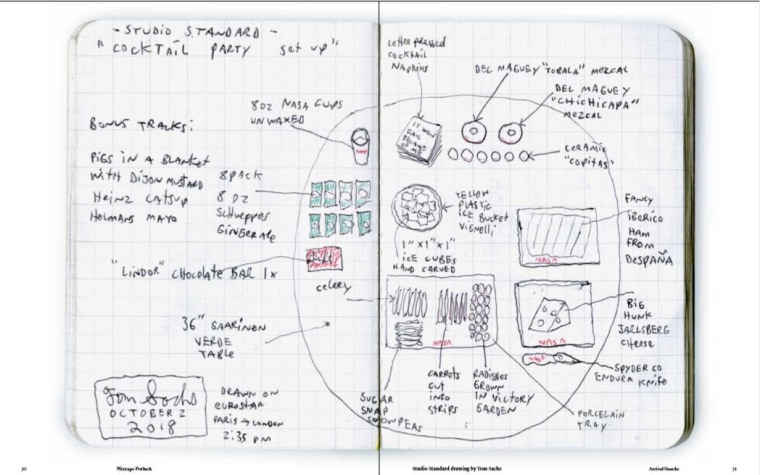 - STUDIO STANDARD -
"COCKTAIL PARTY set up"
BONUS TRACKS:
PIGS IN A BLANKET
WITH DIJON MUSTARD
HEINZ CATSUP
HOLMANS MAYO
8 OZ NASA CUPS
UNWAXED
8 PACK
8 OZ
SCHWEPPES
GINGERALE
"LINDOR" CHOCOLATE BAR 1x
celery
36" SAARINEN
VERDE
TABLE
Tom Sachs
OCTOBER 2
2018
DRAWN ON
EUROSTAR
PARIS → LONDON
2:35 PM
Letterpressed
COCKTAIL
NAPKINS
IT WON'T
FAIL
BECAUSE
OF ME
DEL MAGUEY "TOBALA" MEZCAL
DEL MAGUEY
"CHICHICAPA"
MEZCAL
CERAMIC
"COPITAS"
YELLOW
PLASTIC
ICE BUCKET
VIGNELLI
1"x1"x1"
ICE CUBES
HAND CARVED
FANCY
IBERICO
HAM
FROM
DESPAÑA
NASA
BIG
HUNK
JARLSBERG
CHEESE
NASA
NASA
SPYDERCO
ENDURA KNIFE
SUGAR
SNAP
SNOWPEAS
CARROTS
CUT
INTO
STRIPS
RADISHES
GROWN
IN VICTORY
GARDEN
PORCELAIN
TRAY
70
Mixtape Potluck
Studio Standard drawing by Tom Sachs
Arrival Snacks
71